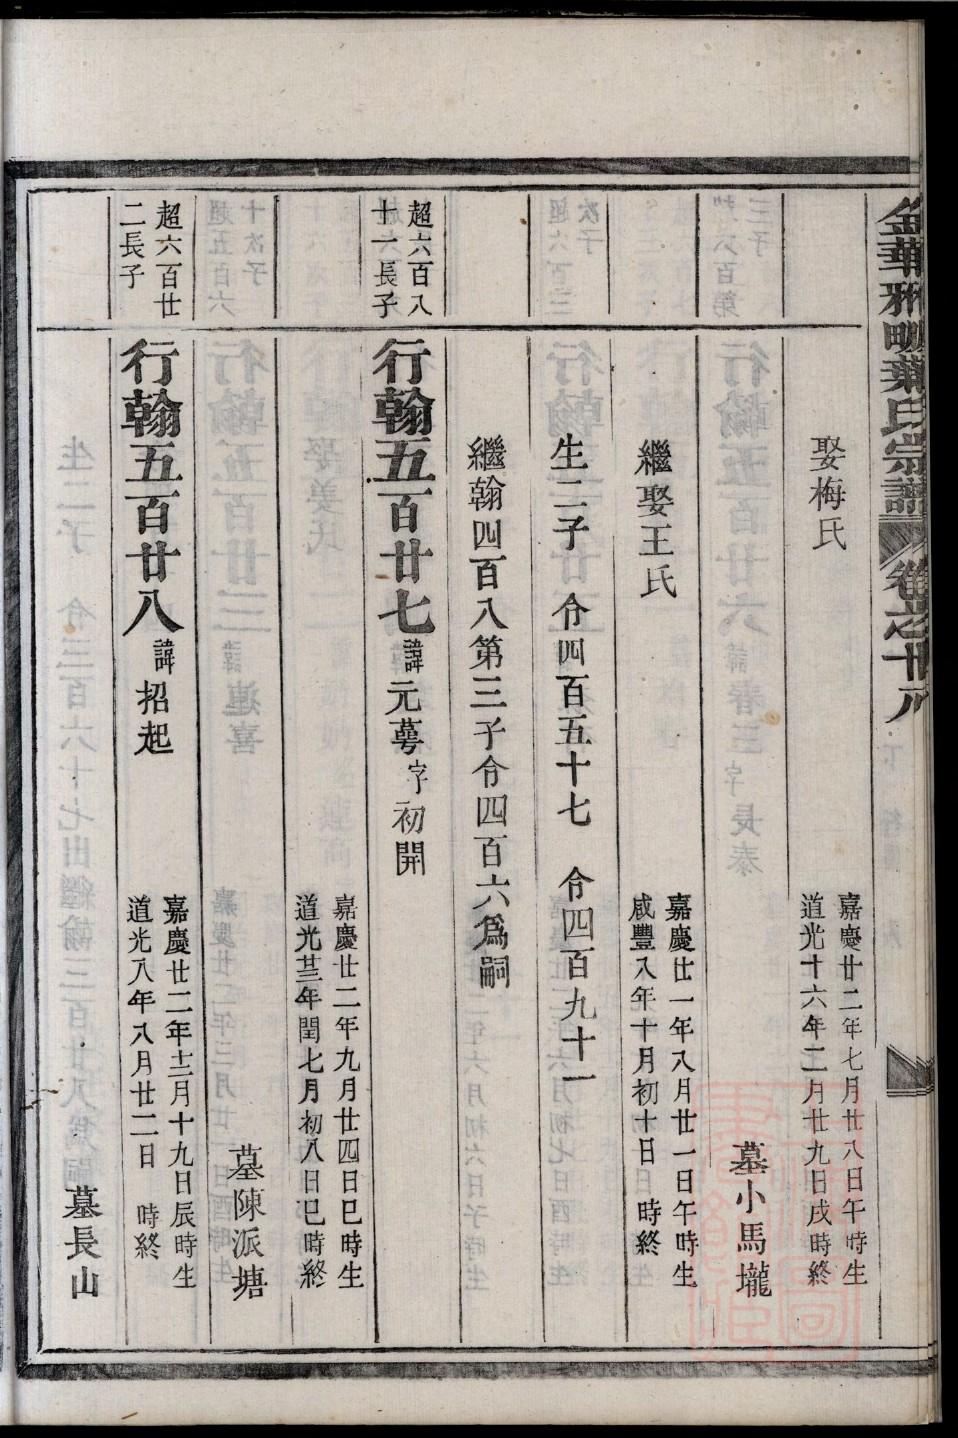 金華雅畈葉氏宗譜 卷之十八
娶梅氏
嘉慶廿二年七月廿八日午時生
道光十六年二月廿九日戌時終
墓小馬壠
繼娶王氏
嘉慶廿一年八月廿一日午時生
咸豐八年十月初十日 時終
生二子 令四百五十七 令四百九十一
繼翰四百八第三子令四百六爲嗣
超六百八
十一長子
行翰五百廿七諱元蕚字初開
嘉慶廿二年九月廿四日巳時生
道光廿三年閏七月初八日巳時終
墓陳派塘
超六百廿
二長子
行翰五百廿八諱招起
嘉慶廿二年十二月十九日辰時生
道光八年八月廿二日 時終
墓長山